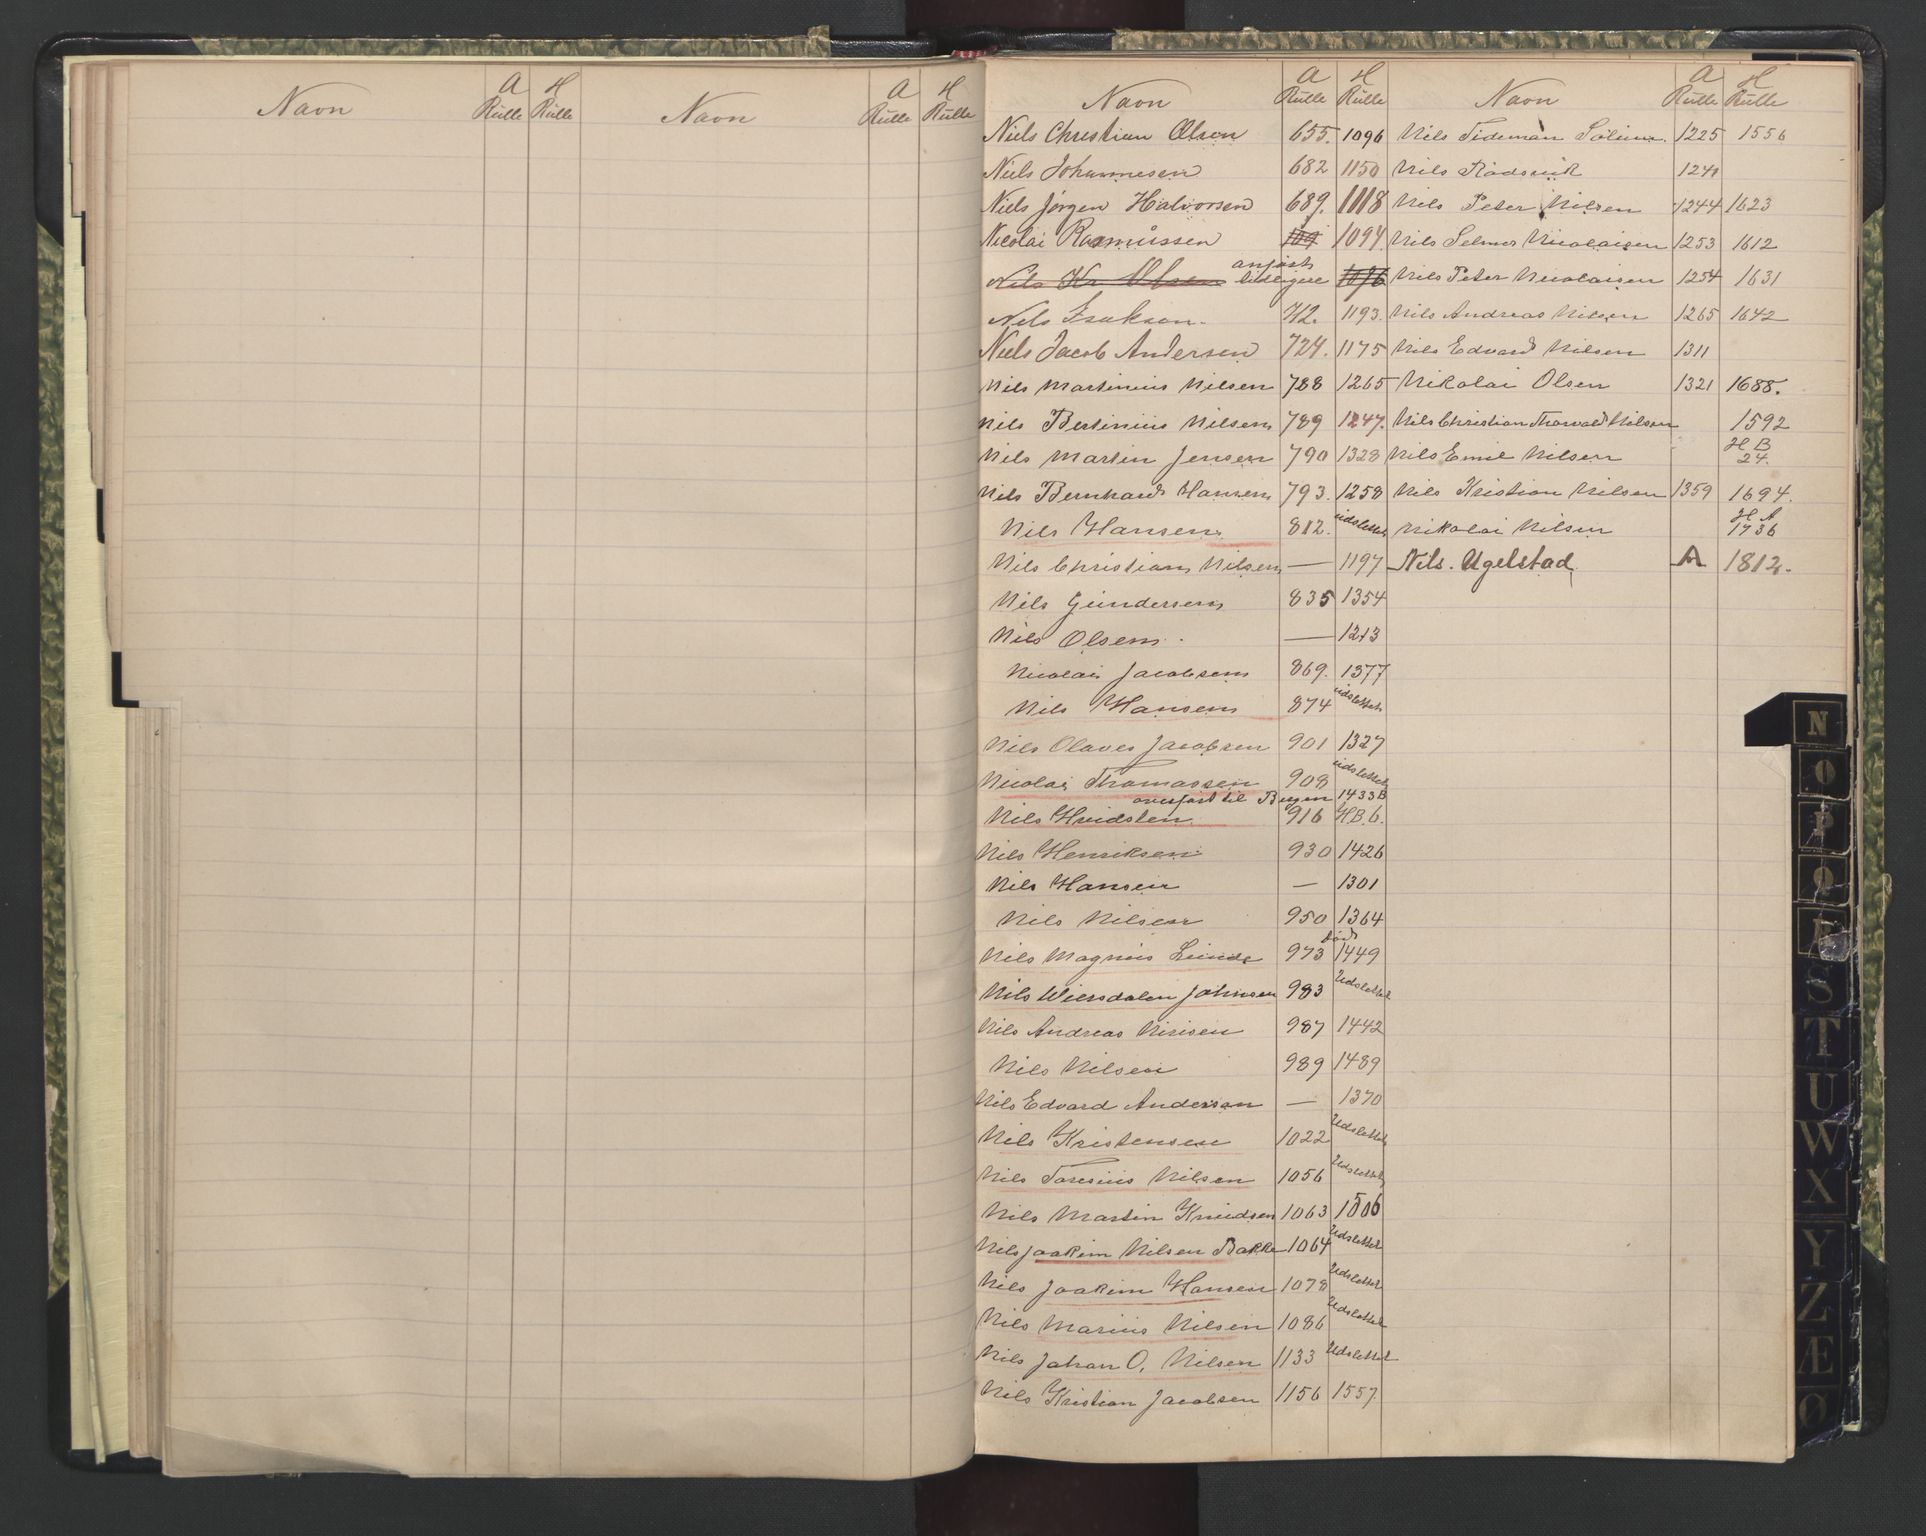 Navn A Rulle H Rulle Navn A Rulle H Rulle
Navn A Rulle H Rulle
Niels Christian Olsen 655. 1096
Niels Johannesen 682 1150
Niels Jørgen Halvorsen 689. 1118
Nicolai Rasmussen 109 1094
Nils Kr Olsen anført tidligere 1096
Nils Isaksen. 712. 1193.
Niels Jacob Andersen 724. 1175
Nils Martinius Nilsen 788 1265
Nils Bertinius Nilsen 789 1247.
Nils Martin Jensen 790 1328
Nils Bernhard Hansen 793. 1258
Nils Hansen 812. udslettet
Nils Christian Nilsen — 1197
Nils Gundersen 835 1354
Nils Olsen. — 1213
Nicolai Jacobsen 869. 1377
Nils Hansen 874 udslettet
Nils Olaves Jacobsen 901 1327
Nicolai Thomassen 908 udslettet
overført til Bergen 1433B
Nils Hvidsten 916 H.B. 6.
Nils Henriksen 930 1426
Nils Hansen — 1301
Nils Nilsen 950 1364
Nils Magnus Lunde 973 død 1449
Nils Wiersdalen Johnsen 983 Udslettet
Nils Andreas Nirisen 987 1442
Nils Nilsen 989 1489
Nils Edvard Andersen — 1370
Nils Kristensen 1022 Udslettet
Nils Toresius Nilsen 1056 Udslettet
Nils Martin Knudsen 1063 1506
Nils Joakim Nilsen Bakke 1064 Udslettet
Nils Joakim Hansen 1078 Udslettet
Nils Marius Nilsen 1086 Udslettet
Nils Johan O. Nilsen 1133 Udslettet
Nils Kristian Jacobsen 1156 1557.
Navn A Rulle H Rulle
Nils Tideman Solum 1225 1556
Nils Rådsvik 1240
Nils Peter Nilsen 1244 1623
Nils Selmer Nicolaisen 1253 1612
Nils Peter Nicolaisen 1254 1631
Nils Andreas Nilsen 1265 1642
Nils Edvard Nilsen 1311
Nikolai Olsen 1321 1688.
Nils Christian Thorvald Nilsen 1592
Nils Emil Nilsen H B 24.
Nils Kristian Nilsen 1359 1694.
Nikolai Nilsen H A 1736
Nils. Ugelstad A 1812.
N
O
P
Q
R
S
T
U
W
X
Y
Z
Æ
Ø